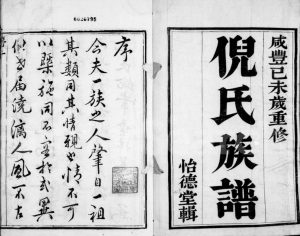 咸豐己未歲重修
倪氏族譜
怡德堂輯
序
合夫一族之人肇自一祖
其類同其情親也情不可
以槩施同不
人風不古